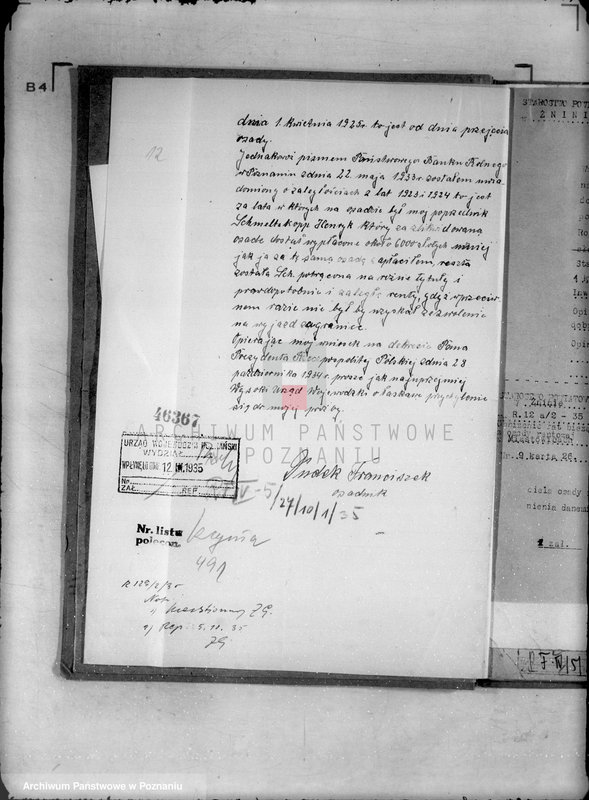 B4
12
dnia 1. kwietnia 1925r. to jest od dnia przejęcia
osady.
Jednakowoż pismem Państwowego Banku Rolnego
w Poznaniu z dnia 22 maja 1933r. zostałem uwia-
domiony o zaległościach z lat 1923 i 1924 to jest
za lata w których na osadzie był mój poprzednik
Schmeltekopp Henryk który za zlikwidowaną
osadę dostał wypłacone około 6000 złotych mniej
jak ja za tę samą osadę zapłaciłem, reszta
została Sch. potrącona na różne tytuły i
prawdopodobnie i zaległe renty, gdyż w przeciw-
nem razie nie był by uzyskał zezwolenie
na wyjazd zagranicę.
Opierając mój wniosek na dekrecie Pana
Prezydenta Rzeczpospolitej Polskiej z dnia 28
października 1934r. proszę jak najuprzejmiej
Wysoki Urząd Wojewódzki o łaskawe przychylenie
się do mojej prośby.
46367
ARCHIWUM PAŃSTWOWE
W POZNANIU
URZĄD WOJEWÓDZKI POZNAŃSKI
WYDZIAŁ
WPŁYNĘŁO DNIA 12 IX. 1935
No
ZAŁ. REP.
Franciszek
osadnik
27/10/1/35
Nr. listu
polecon.
Kcynia
491
R 129/2/35
STAROSTWO POW
ŻNINI
Sta
Opi
Opin
STAROSTWO POWIATOW
R.12 a/2 - 35
Nr. 9 karta 26.
ciela osady
nienia danemi
1 zał.
Archiwum Państwowe w Poznaniu